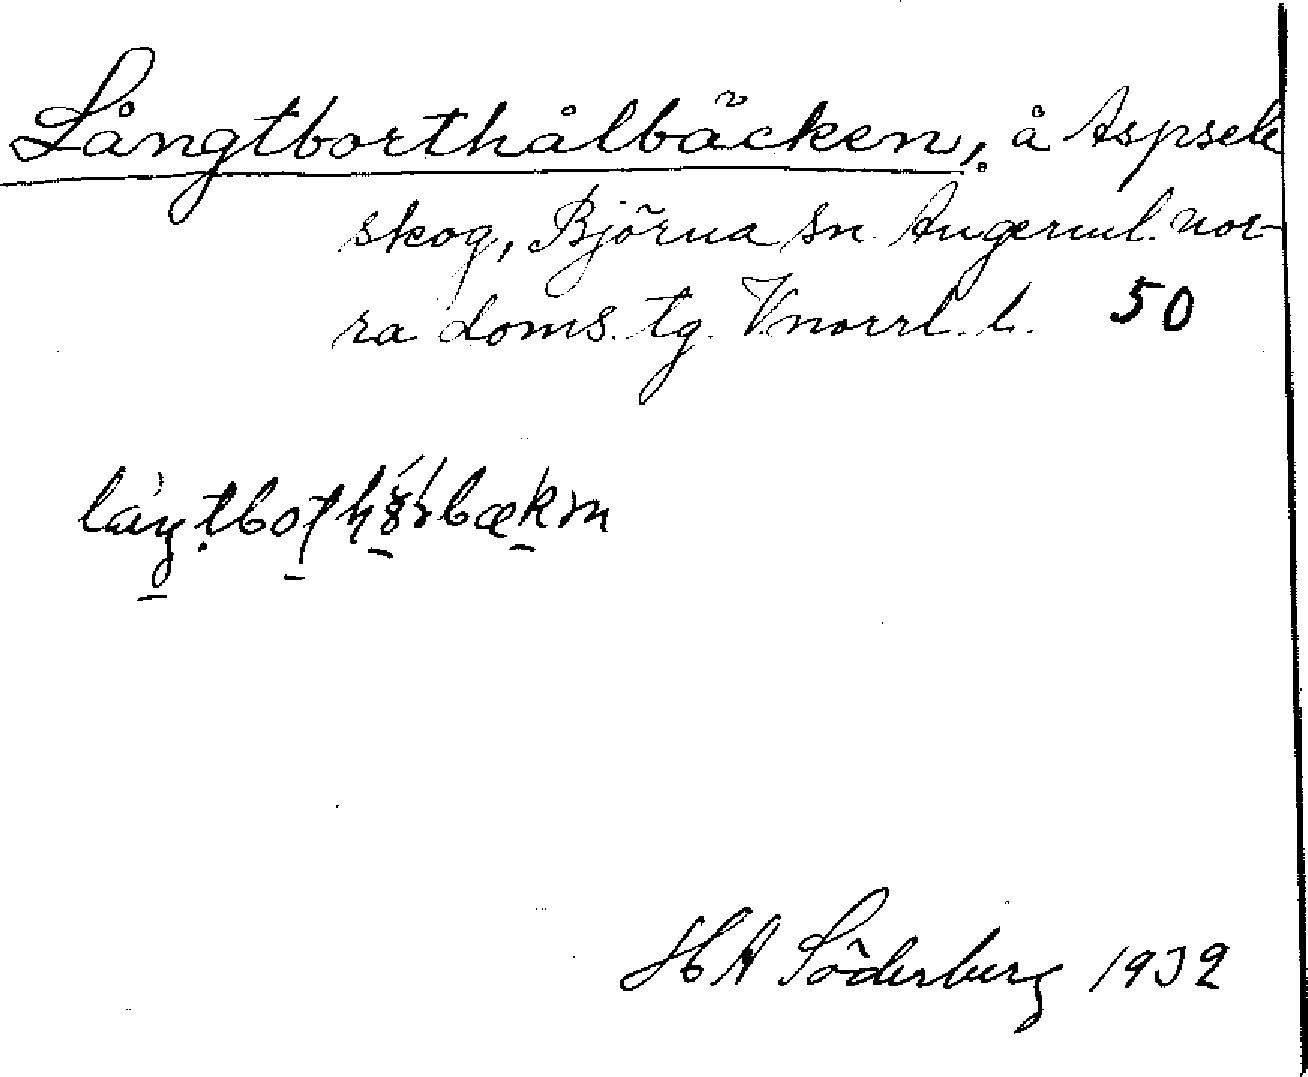 Långtborthålbäcken, å Aspsele
skog, Björna sn. Ångerml. nor-
ra doms. tg. Vnorrl. l. 50
H A Söderberg 1932